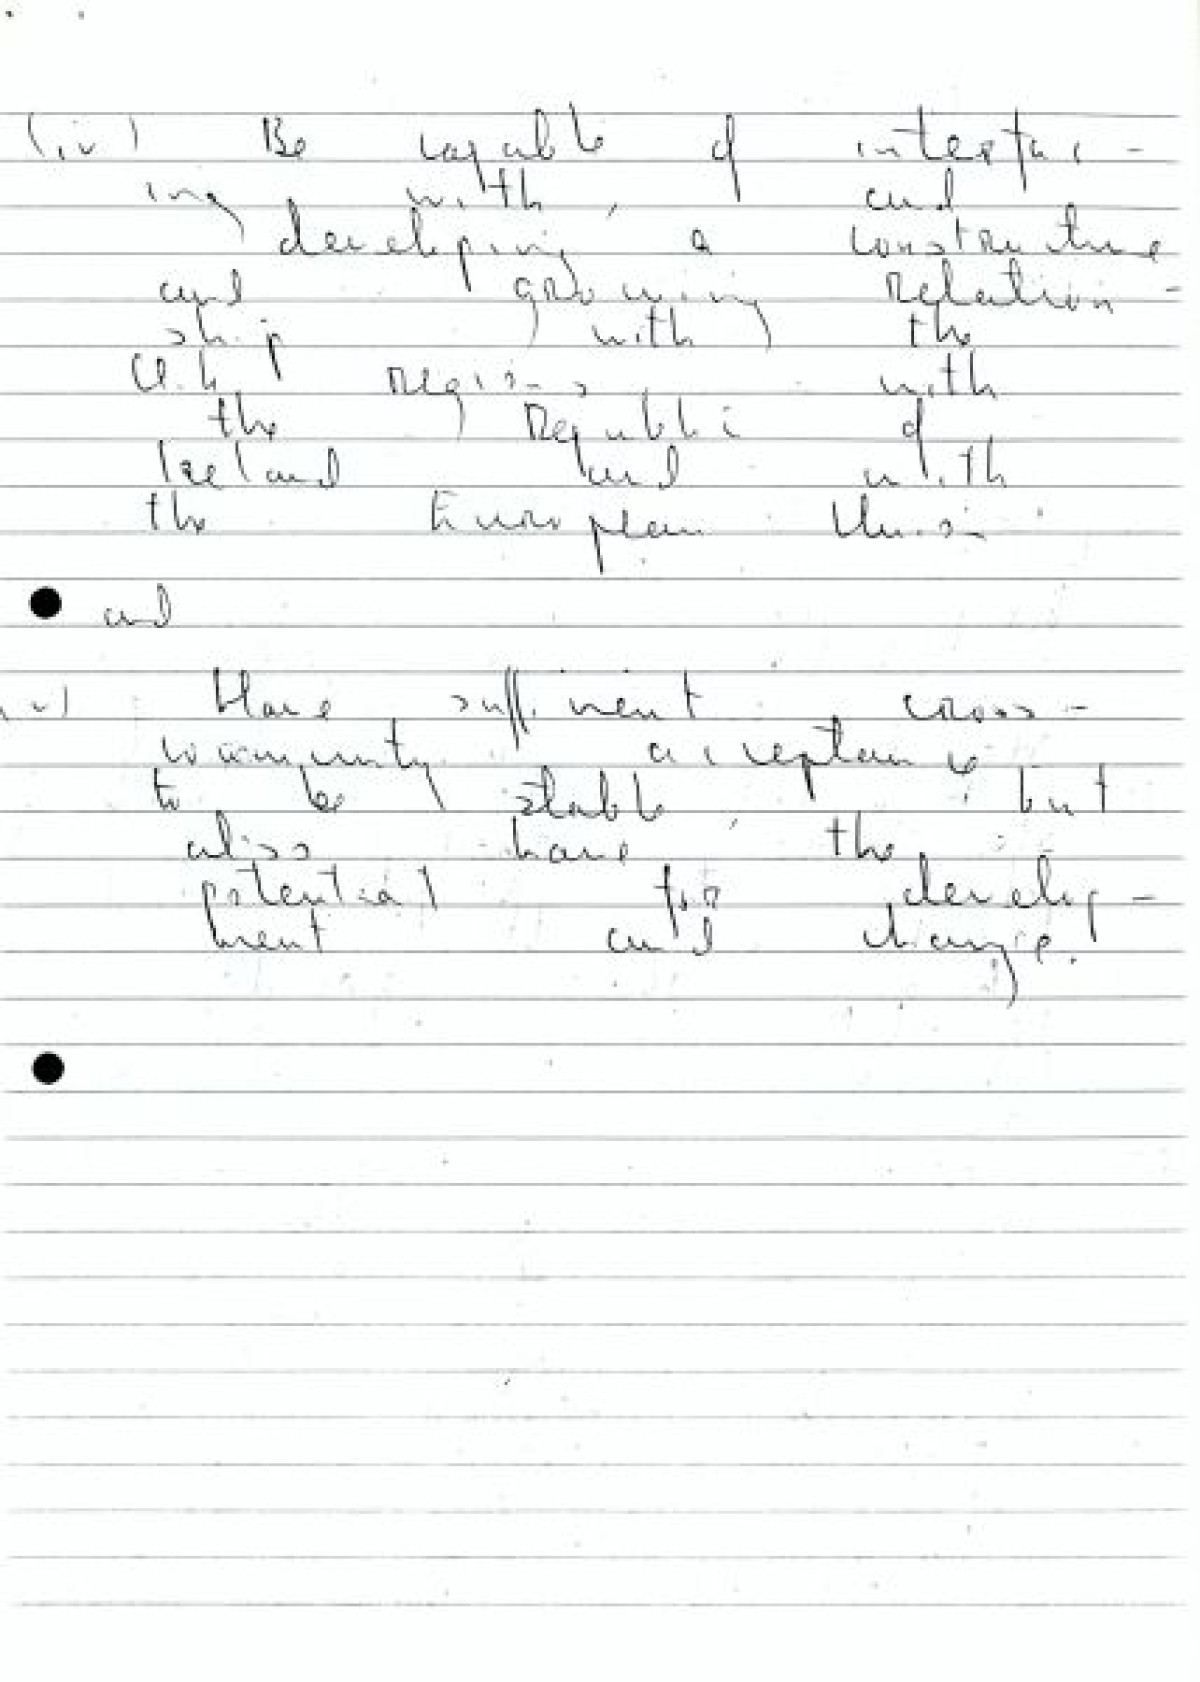 (iv) Be capable of interfac-
ing with, and
developing a constructive
and growing relation-
ship with the
U.K. regions, with
the Republic of
Ireland and with
the European Union
and
(v) Have sufficient cross-
community acceptance
to be stable, but
also have the
potential for develop-
ment and change.